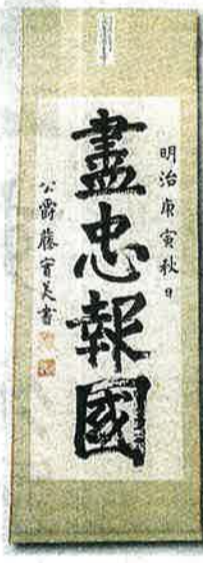 明治庚寅秋日
盡忠報國
公爵藤實美書